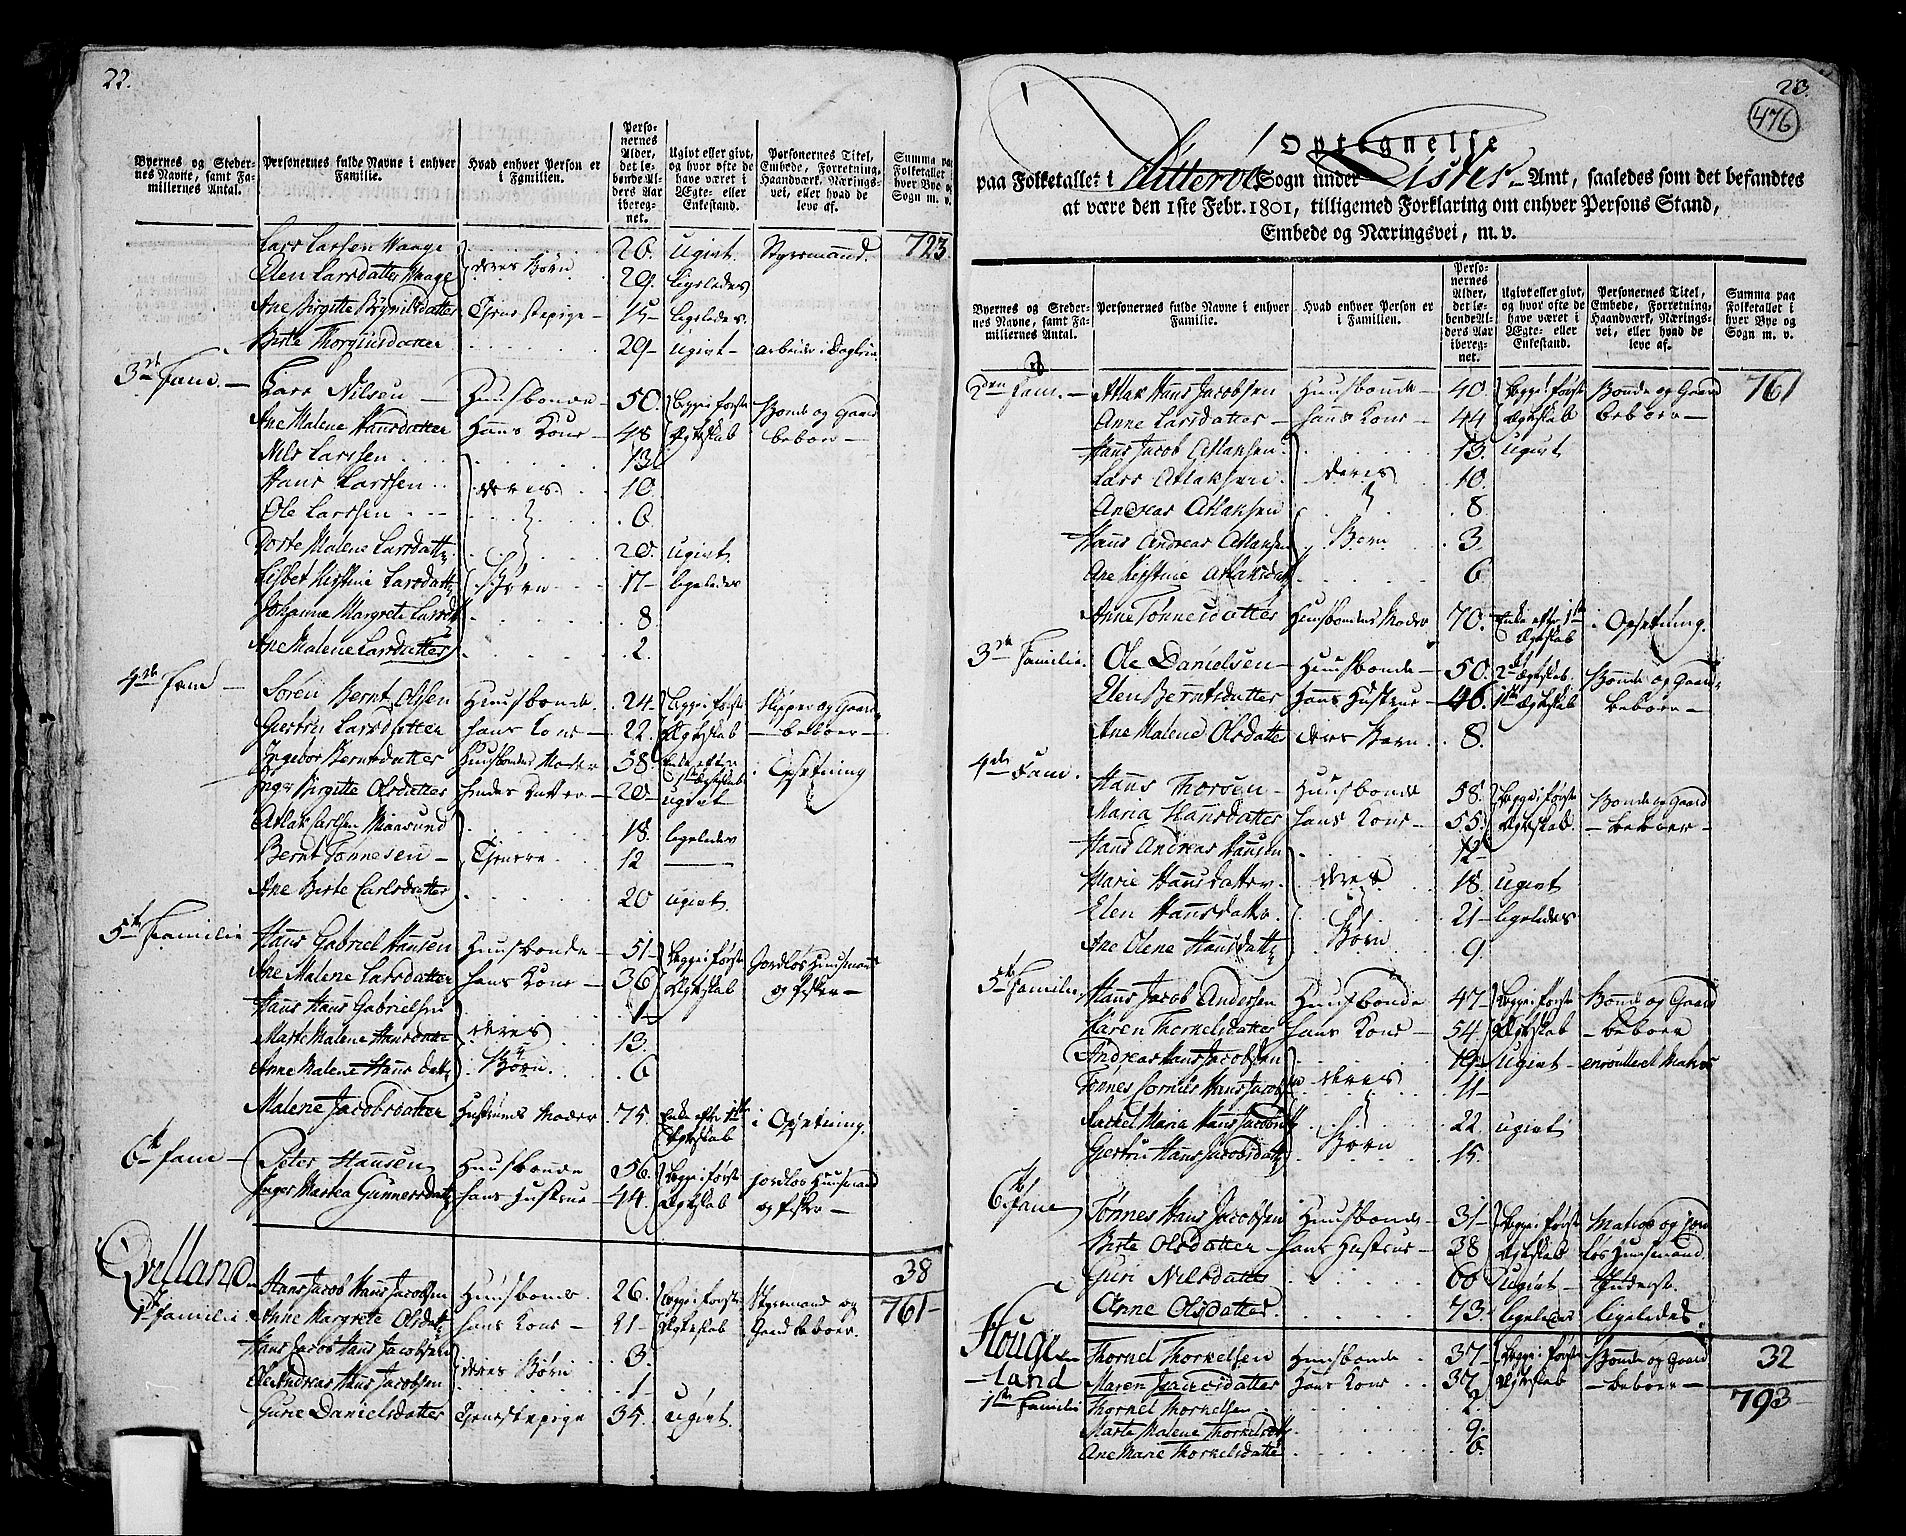 22.
Byernes og Steder-nes Navne, samt Fa-miliernes Antal.
Personernes fulde Navne i enhver Familie.
Hvad enhver Person er i Familien.
Perso-nernes Alder, det le-bende Al-ders Aar iberegnet.
Ugivt eller givt, og hvor ofte de have været i Ægte- eller Enkestand.
Personernes Titel, Embede, Forretning, Haandværk, Nærings-vei, eller hvad de leve af.
Summa paa Folketallet i hver Bye og Sogn m. v.
Lars Larsen Waage 20. ugivt. Styrmand. 723
Elen Larsdatter Waage deres Børn 29. ligeledes
Ane Birgitte Tjenestepige 15 ligeledes.
Birte 29 ugivt arbeider i Dagløn
3de Fam. Lars Nilsen Huusbonde 50. Begge i første Bonde og Gaard
Ane Malene Hansdatter Hans Kone 48 Ægteskab beboer
Nils Larsen 13
Hans Larssen deres 10
Ole Larssen 6
Dorte Malene Larsdatt. 20. ugivt.
Lisbet Kirstine Larsdatt. Børn 17 ligeledes
Johanne Margrete Larsd. 8
Ane Malene Larsdatter 2.
4de Fam Søren Bernt Olsen Huusbonde 24 Begge i første og Gaard
Giertru Larsdatter Hans Kone 22. Ægteskab beboer
Ingebor Berntsdatter Huusbondes Moder 58. Enke efter 1ste Ægteskab i Opsetning
Inger Birgitte Olsdatter hendes Datter 20 ugivt
Atlak Carlsen 18. ligeledes
Bernt Tønnesen Tjenere 12
Ane Birte Carlsdatter 20 ugivt.
5te Familie Hans Gabriel Hansen Huusbonde 51 Begge i første Jordløs Huusmand
Ane Malene Larsdatter hans Kone 36 Ægteskab og fisker
Hans Hans Gabrielsen
Marte Malene Hansdatt. deres 13.
Anne Malene Hansdatt. Børn 6
Malene Jacobsdatter Hustrues Moder 75. Enke efter 1ste Ægteskab i Opsetning.
6te Fam Peter Hansen Huusbonde 56. Begge i første Jordløs Huusmand
Inger Martea Gunnersdatt. Hans Hustrue 44. Ægteskab og fisker
38
Qvelland Hans Jacob Hans Jacobsen Huusbonde 26. Begge i første Styrmand og 761
1ste Familie Anne Margrete Olsdatt. hans Kone 21 Ægteskab Gaard beboer.
Hans Jacob Hans Jacobsen deres Børn 3.
Ole Andreas Hans Jacobsen 1
Gurie Danielsdatter Tjenestepige 35. ugivt.
23.
476
Optegnelse
paa Folketallet i Hitterøe Sogn under Lister Amt, saaledes som det befandtes
at være den 1ste Febr. 1801, tilligemed Forklaring om enhver Persons Stand,
Embede og Næringsvei, m. v.
Byernes og Steder-nes Navne, samt Fa-miliernes Antal.
Personernes fulde Navne i enhver Familie.
Hvad enhver Person er i Familien.
Perso-nernes Alder, det le-bende Al-ders Aar iberegnet.
Ugivt eller givt, og hvor ofte de have været i Ægte- eller Enkestand.
Personernes Titel, Embede, Forretning, Haandværk, Nærings-vei, eller hvad de leve af.
Summa paa Folketallet i hver Bye og Sogn m. v.
2den Fam. Atlak Hans Jacobsen Huusbonde 40. Begge i første Bonde og Gaard 761
Anne Larsdatter hans Kone 44 Ægteskab beboer
Hans Jacob Atlaksen 13. ugivt
Lars Atlaksen deres 10.
Andreas Atlaksen 8
Hans Andreas Atlaksen Børn 3.
Ane Kirstine Atlaksdatt. 6
Anne Tønnesdatter Huusbondes Moder 70. Enke efter 1ste Ægteskab i Opsetning.
3de Familie. Ole Danielsen Huusbonde 50. 2det Ægteskab. Bonde og Gaard
Elen Berntsdatter Hans Hustrue 46. 1ste Ægteskab beboer
Ane Malene Olsdatter deres Barn 8.
4de Fam. Hans Thorsen Huusbonde 58. Begge i første Bonde og Gaard
Maria Hansdatter hans Kone 55. Ægteskab. beboer
Hans Andreas Hansen 12
Marie Hansdatter deres 18. ugivt
Elen Hansdatter 21 ligeledes
Ane Olene Hansdatt. Børn 9
5te Familie Hans Jacob Andersen Huusbonde 47 Begge i første Bonde og Gaard
Karen Thorkelsdatter hans Kone 54. Ægteskab beboer
Andreas Hans Jacobsen 19 ugivt enroulleret Matros
Tønnes Cornelis Hans Jacobsen deres 11
Rackel Maria Hans Jacobsdatt. 22. ugivt
Giertru Hans Jacobsdatt. Børn 15.
6te Fam Tønnes Hans Jacobsen Huusbonde 31 Begge i første Matros og jord
Birte Olsdatter hans Hustrue 38 Ægteskab løs Huusmand.
Guri Nilsdatter 60 ugivt Inderst.
Anne Olsdatter. 73. ligeledes ligeledes.
Houge- Thorkel Thorkelsen Huusbonde 37 Begge i første Bonde og Gaard 32
land Maren hans Kone 37 Ægteskab beboer 793
1ste Familie Thorkel Thorkelsen 2.
Marte Malene Thorkelsdatt. 9.
Ane Marie Thorkelsdatter 6.